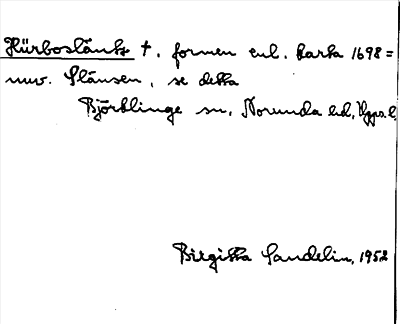 Hürboslänt †, formen enl. karta 1698 =
nuv. Slänsen, se detta
Björklinge sn, Norunda hd, Upps. l.
Birgitta Sandelin, 1952